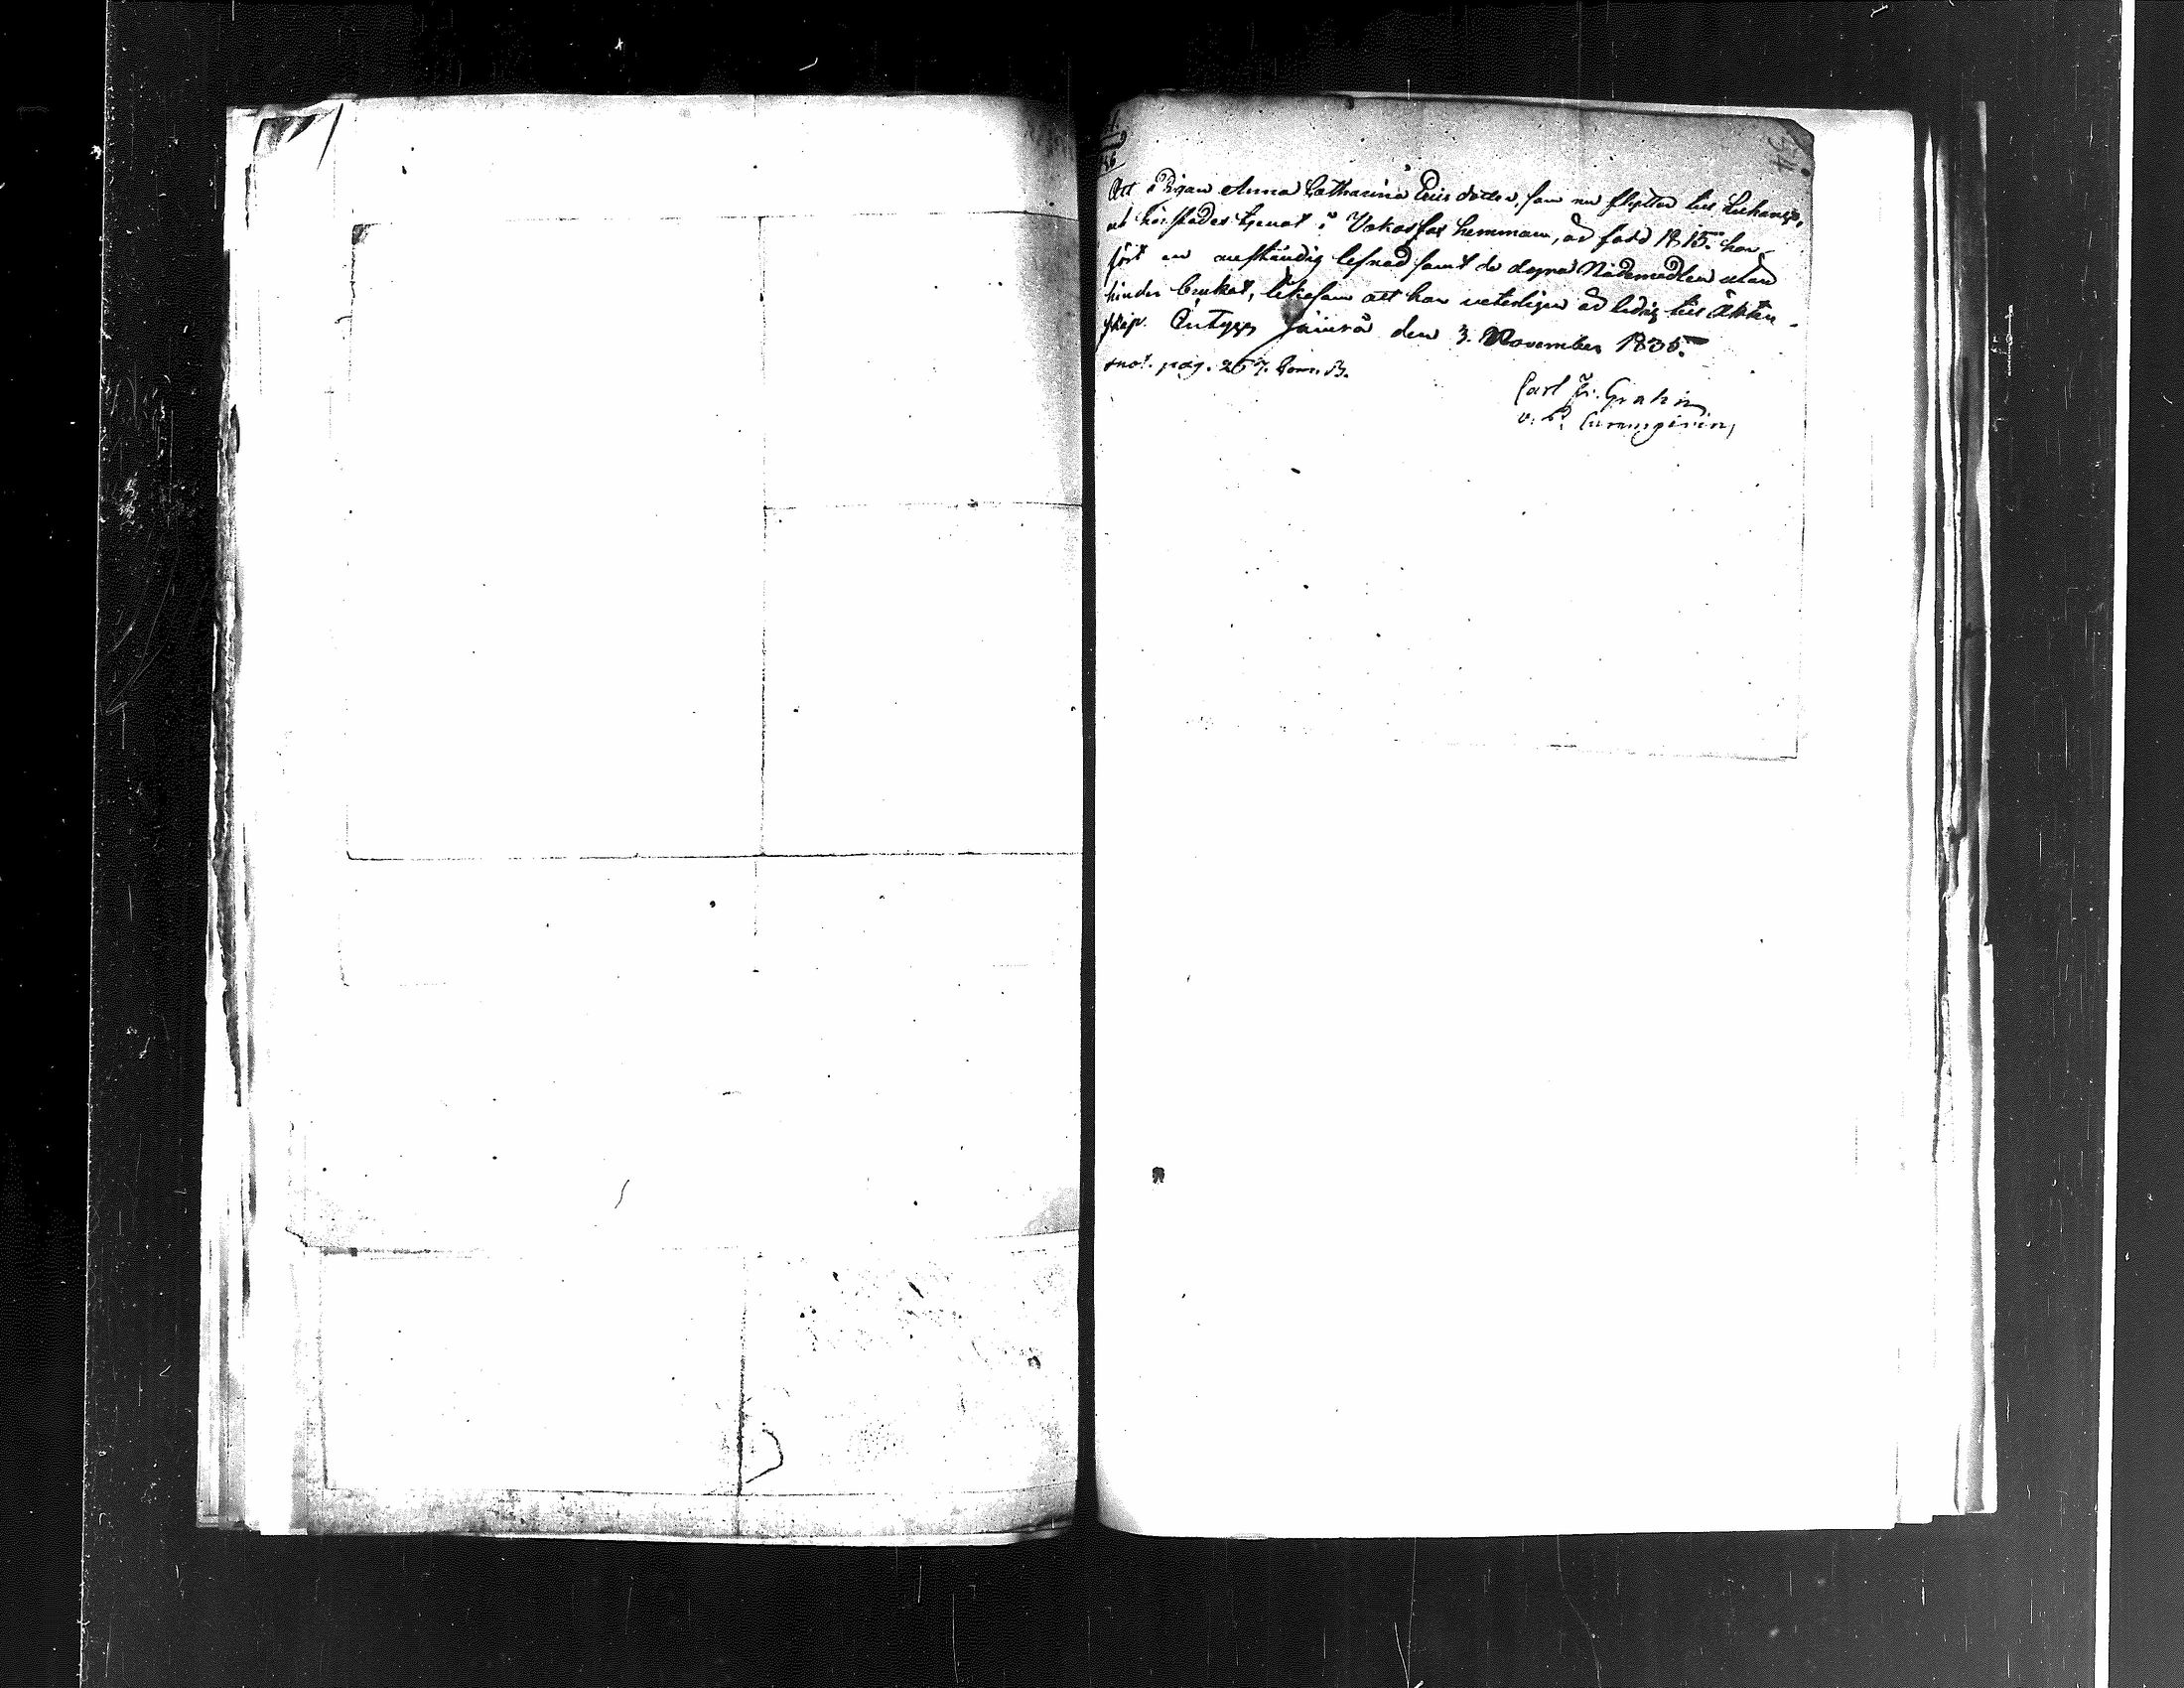 Att Pigan Anna Catharina Ericsdotter, som nu flyttar till Luhanga,
och härstädes tjenat i Vokasfas hemman, är född 1815. har
fört en anständig lefnad samt de dyra Nådemedlen utan
hinder brukat, likasom att hon veterligen är ledig till Äkten-
skap. Betygar Jämsä den 3. November 1836.
anot. pag. 267. Tom. B.
Carl Fr. Grahn
v. P.